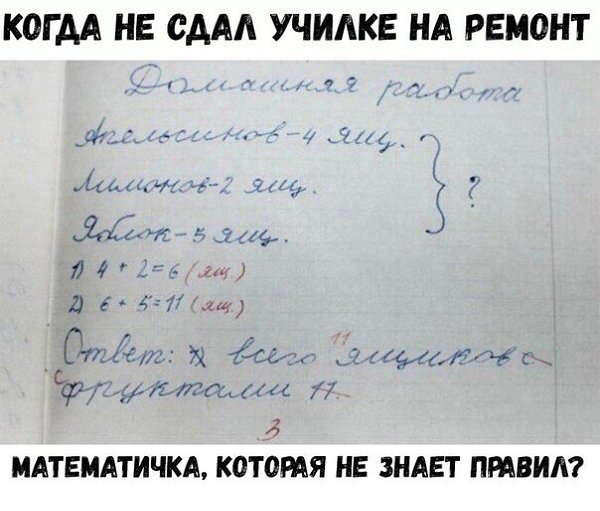 КОГДА НЕ СДАЛ УЧИЛКЕ НА РЕМОНТ
Домашняя работа
Апельсинов-4 ящ.
Лимонов-2 ящ. ?
Яблок-5 ящ.
1) 4 + 2=6 (ящ.)
2) 6 + 5=11 (ящ.)
11
Ответ: всего ящиков с
с фруктами 11.
3
МАТЕМАТИЧКА, КОТОРАЯ НЕ ЗНАЕТ ПРАВИЛ?